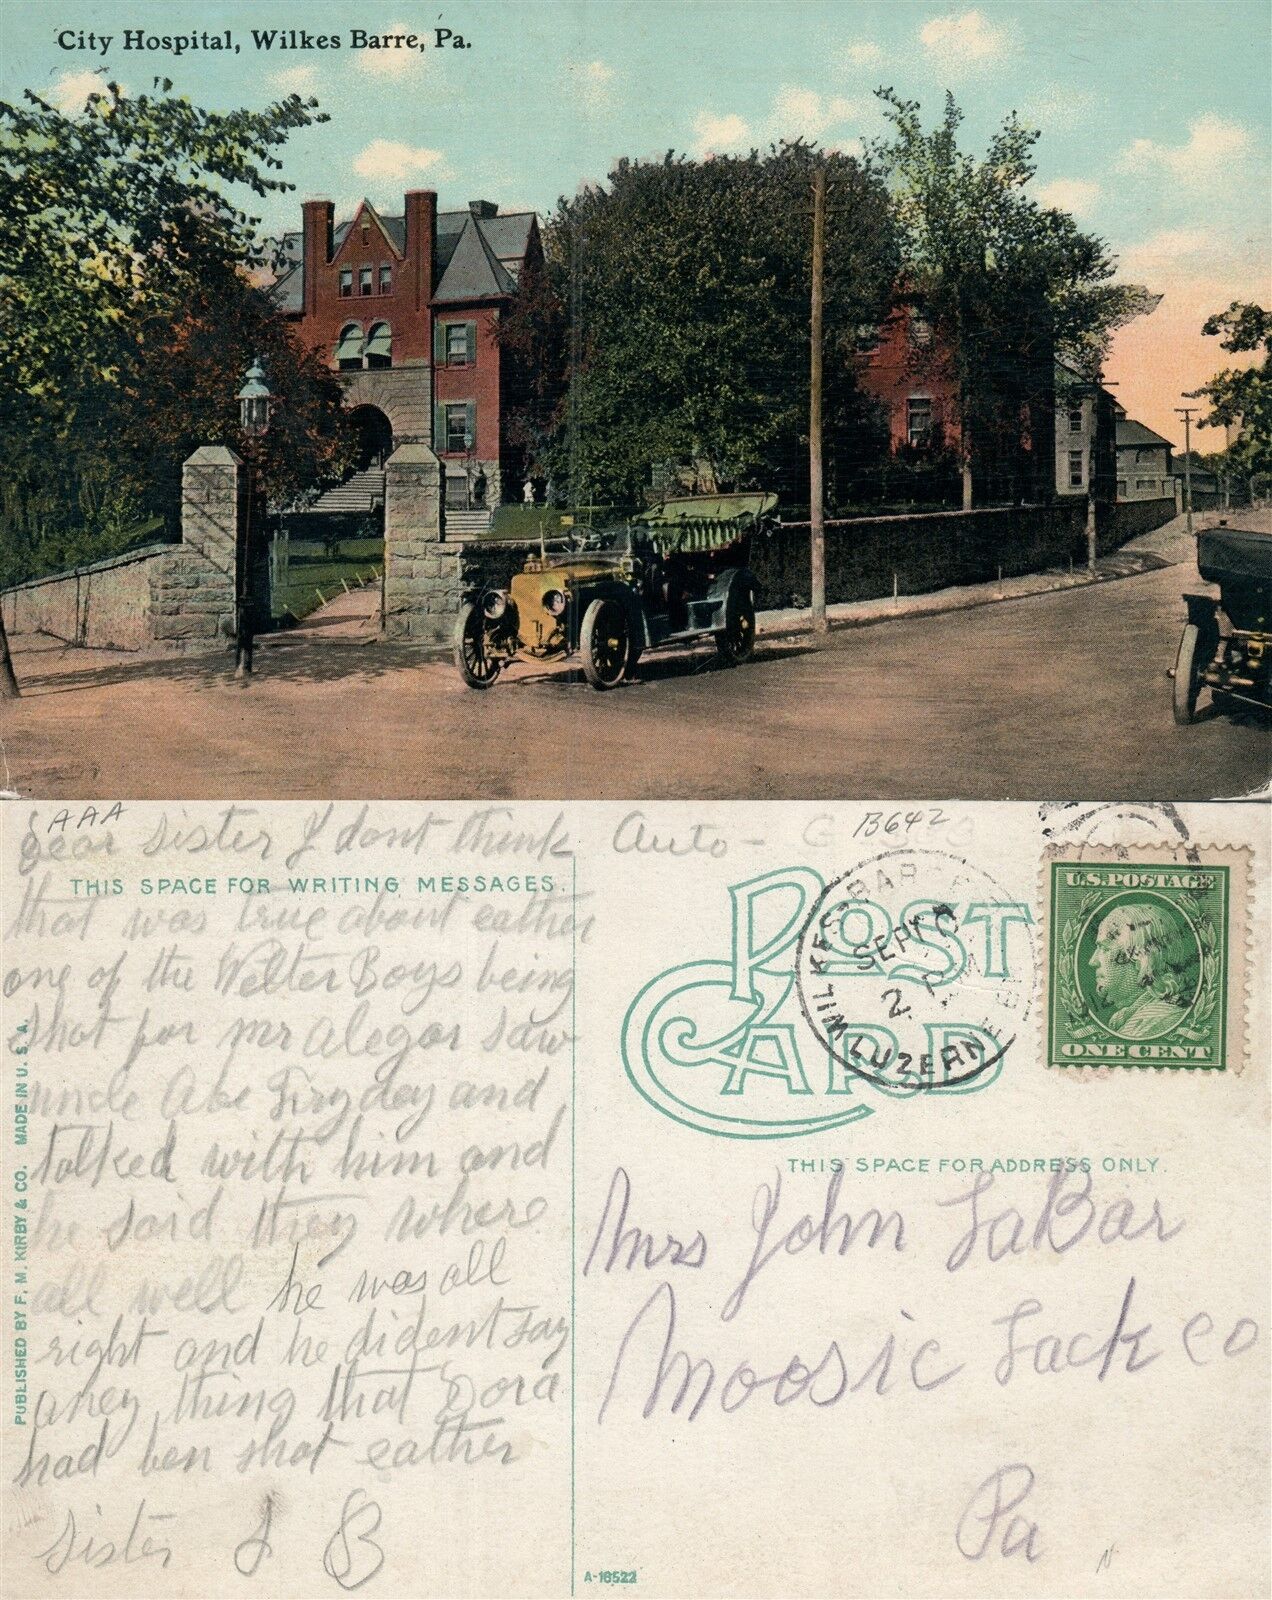 City Hospital, Wilkes Barre, Pa.
AAA
B642
Dear Sister I dont think
Auto -
THIS SPACE FOR WRITING MESSAGES.
that was true about eather
one of the Welter Boys being
shot for mr alegar saw
uncle Abe and
talked with him and
he said they where
all well he was all
right and he dident say
aney thing that Dora
had ben shot eather
Sister L B
PUBLISHED BY F. M. KIRBY & CO. MADE IN U. S. A.
POST CARD
WILKES-BARRE
SEP
2 PM
LUZERNE
U.S. POSTAGE
ONE CENT
THIS SPACE FOR ADDRESS ONLY.
Mrs John LaBar
Moosic Lack Co
Pa
N
A-16522